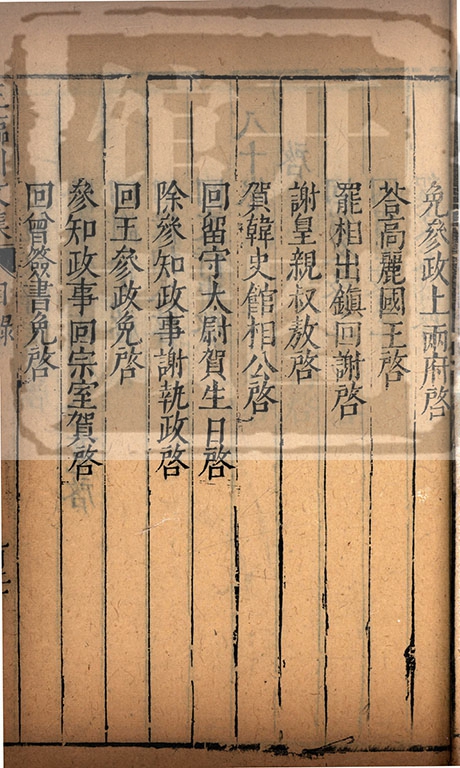 免參政上兩府啓
荅高麗國王啓
罷相出鎮回謝啓
謝皇親叔敖啓
賀韓史館相公啓
回留守太尉賀生日啓
除參知政事謝執政啓
回王參政免啓
參知政事回宗室賀啓
回曾簽書免啓